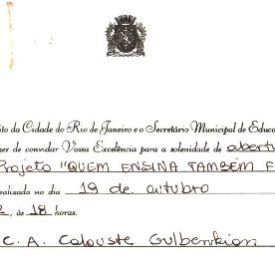 ito da Cidade do Rio de Janeiro e o Secretário Municipal de Educa
zer de convidar Vossa Excelência para a solenidade de abertu
Projeto "QUEM ENSINA TAMBÉM F
ealizada no dia 19 de outubro
2, às 18 horas.
C. A. Calouste Gulbenkian